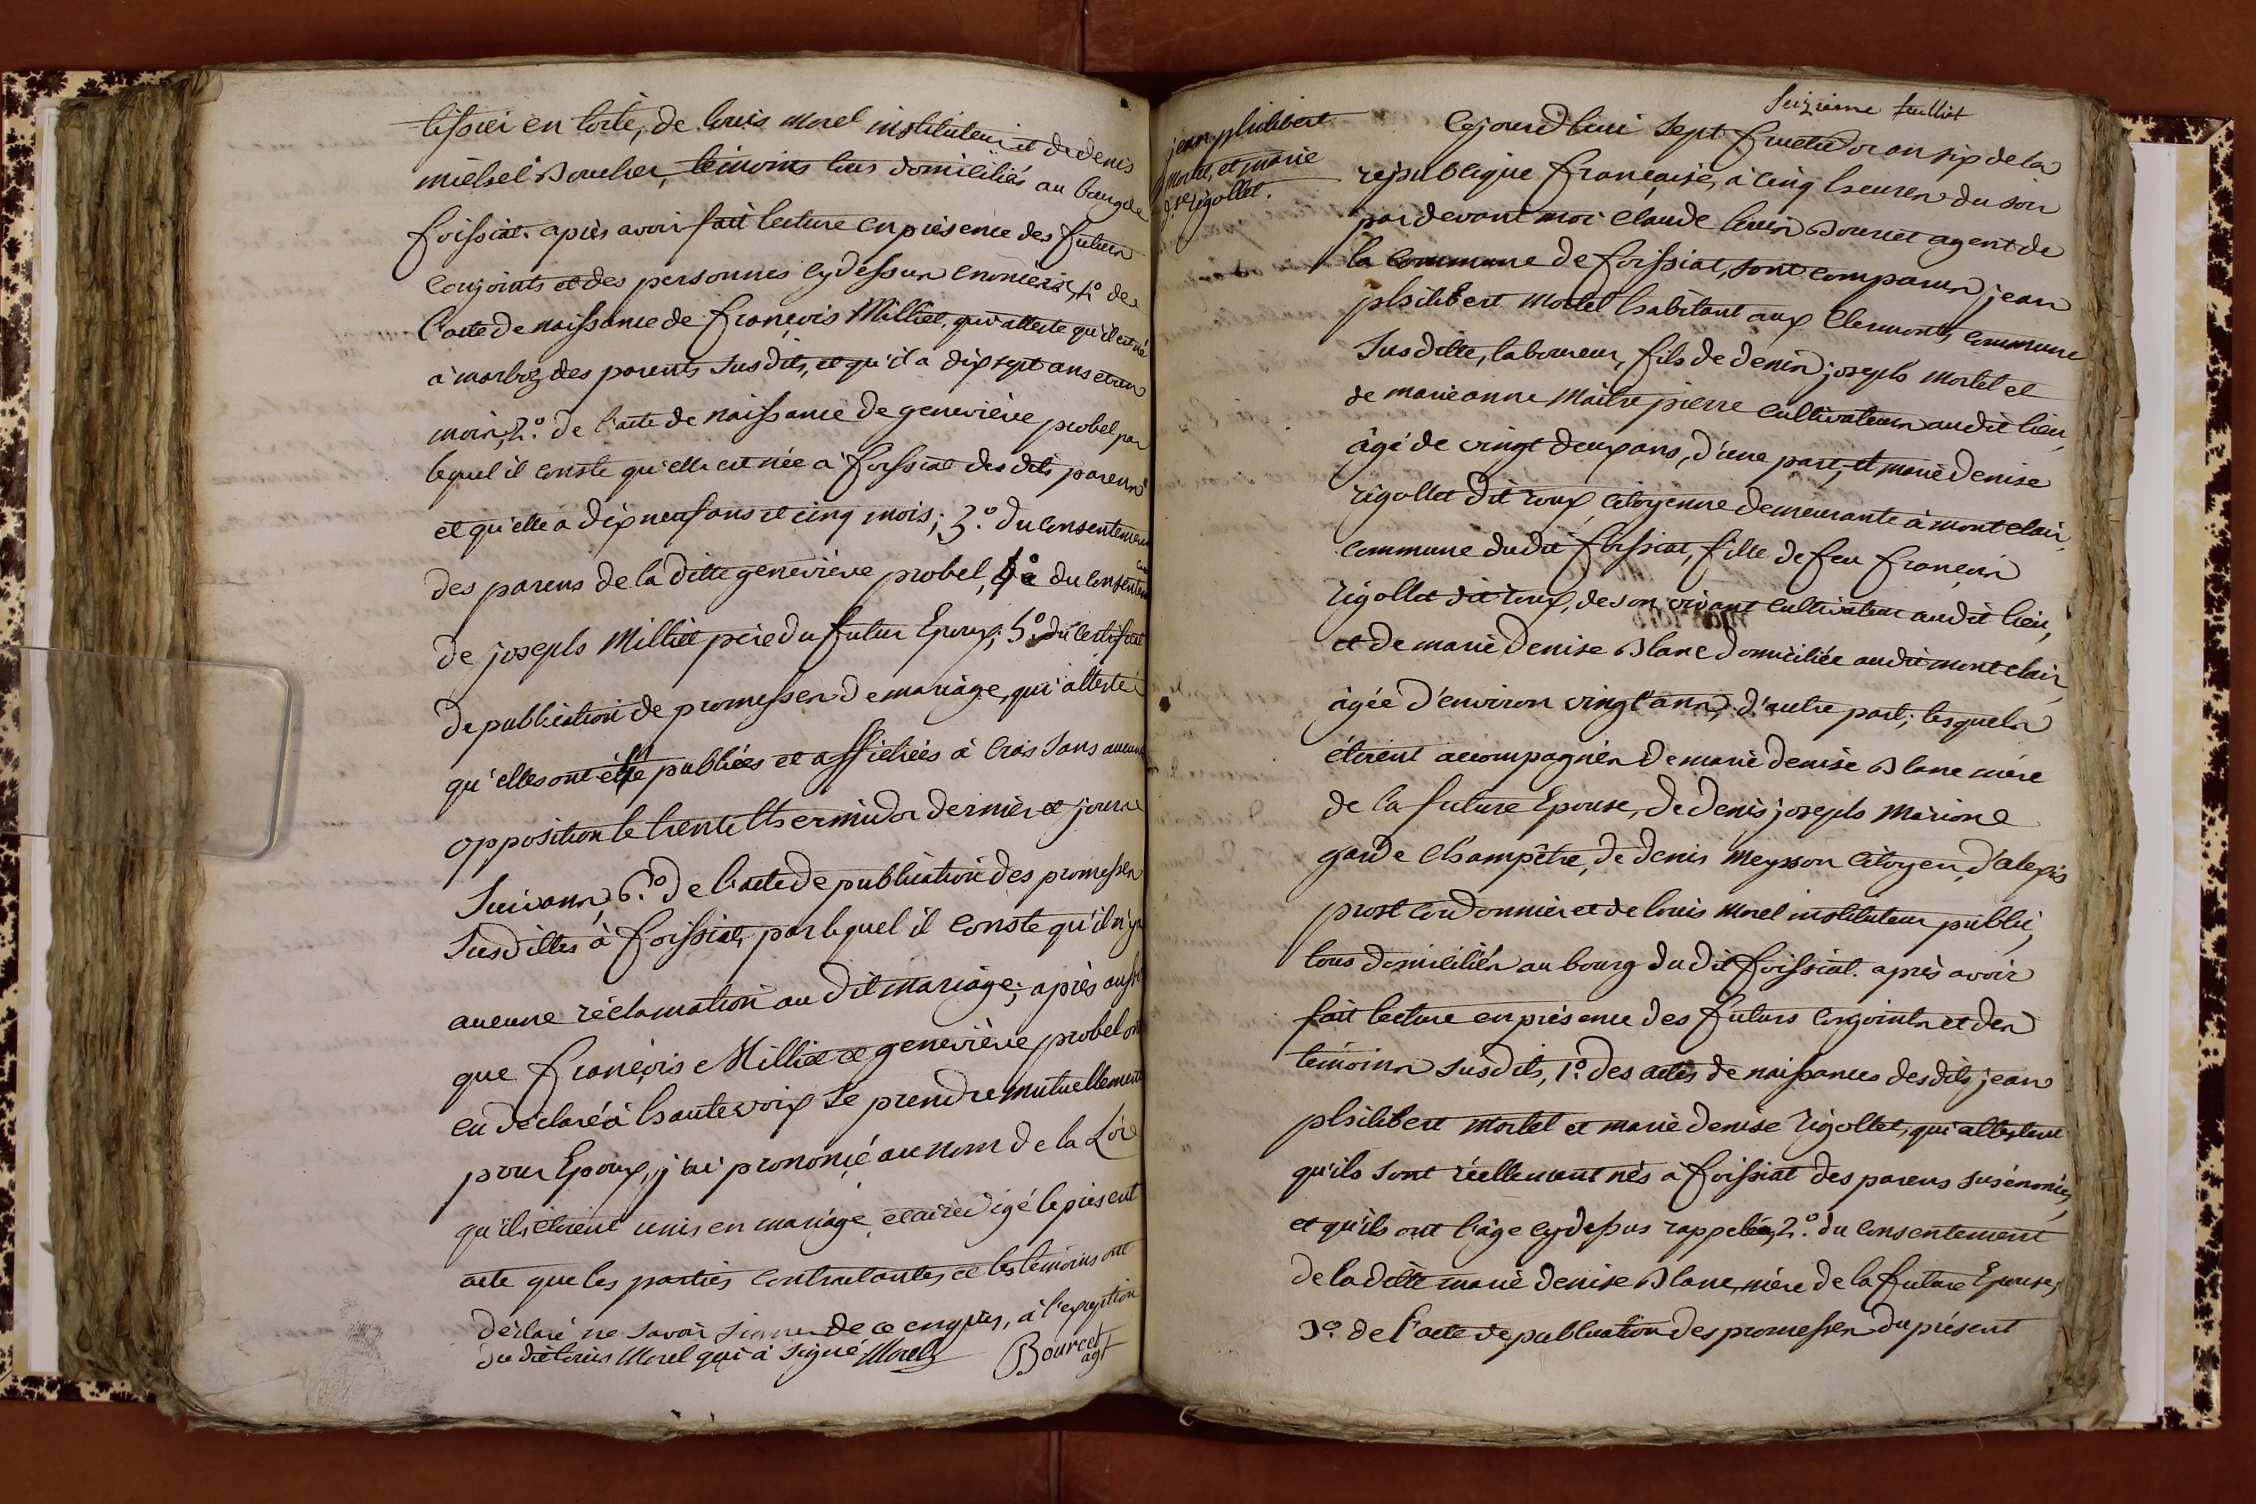 tissier en toile, de louis morel instituteur et de denis
michel Boucher, temoins tous domiciliés au bourg de
foissiat. après avoir fait lecture en présence des futurs
conjoints et des personnes cydessus enoncées, 1.º de
l'acte de naissance de françois Milliet, qui atteste qu'il est né
à marboz des parents susdits, et qu'il a dix sept ans et un
mois, 2.º de l'acte de naissance de geneviève probel par
lequel il conste qu'elle est née à foissiat des dits parens
et qu'elle a dix neuf ans et cinq mois; 3.º du consentement
des parens de la ditte geneviève probel, 4.º du consentem
de joseph Milliet père du futur Epoux; 5.º du certificat
de publication de promesses de mariage, qui atteste
qu'elles ont été publiées et affichées à Cras sans aucune
opposition le trente thermidor dernier et jours
suivans, 6.º de l'acte de publication des promesses
susdittes à foissiat, par lequel il conste qu'il n'y a
aucune réclamation au dit mariage; après aussi
que françois Milliet et geneviève probel ont
eu déclaré à haute voix se prendre mutuellement
pour Epoux, j'ai prononcé au nom de la Loi
qu'ils étoient unis en mariage et ai rédigé le présent
acte que les parties contractantes et les témoins ont
déclaré ne savoir signer de ce enquis, à l'exception
du dit louis Morel qui a signé Morel
Bourcet
agt
Suzanne
jean philibert
mortel, et marie
d.se rigollet.
Cejourd'hui sept fructidor an six de la
republique française, à cinq heures du soir
par devant moi Claude louis Bourcet agent de
la commune de foissiat, sont comparus jean
philibert mortel habitant aux Clermonts, commune
susditte, laboureur, fils de denis joseph mortel et
de marieanne Maitrepierre cultivateurs audit lieu,
âgé de vingt deux ans, d'une part, et marie denise
rigollet dit roux citoyenne demeurante à montclair,
commune dudit foissiat, fille de feu françois
rigollet dit roux, de son vivant cultivateur audit lieu,
et de marie denise Blanc domiciliée audit montclair,
âgée d'environ vingt ans, d'autre part; lesquels
étoient accompagnés de marie denise Blanc mère
de la future Epouse, de denis joseph Marione
garde champêtre, de denis meysson citoyen, d'alexis
prost cordonnier et de louis morel instituteur public,
tous domiciliés au bourg du dit foissiat. après avoir
fait lecture en présence des futurs conjoints et des
témoins susdits, 1.º des actes de naissances desdits jean
philibert mortel et marie denise rigollet, qui attestent
qu'ils sont réellement nés à foissiat des parens susénoncés,
et qu'ils ont l'âge cydessus rappelés, 2.º du consentement
de la ditte marie denise Blanc, mère de la future Epouse,
3.º de l'acte de publication des promesses du présent